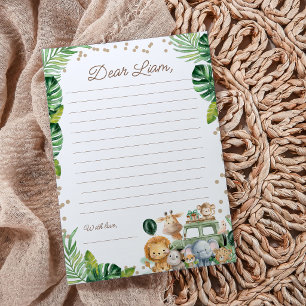 Dear Liam,
With love,